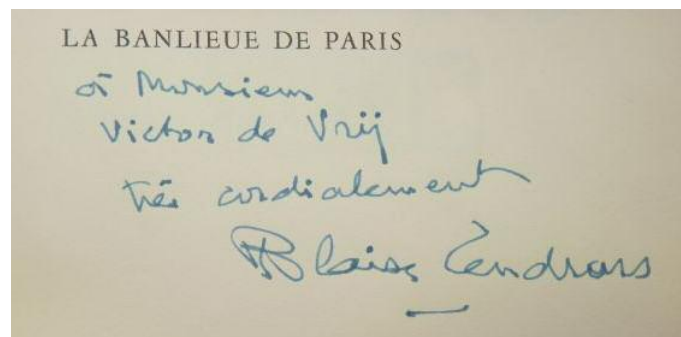 LA BANLIEUE DE PARIS
à Monsieur
Victor de Vrij
très cordialement
Blaise Cendrars